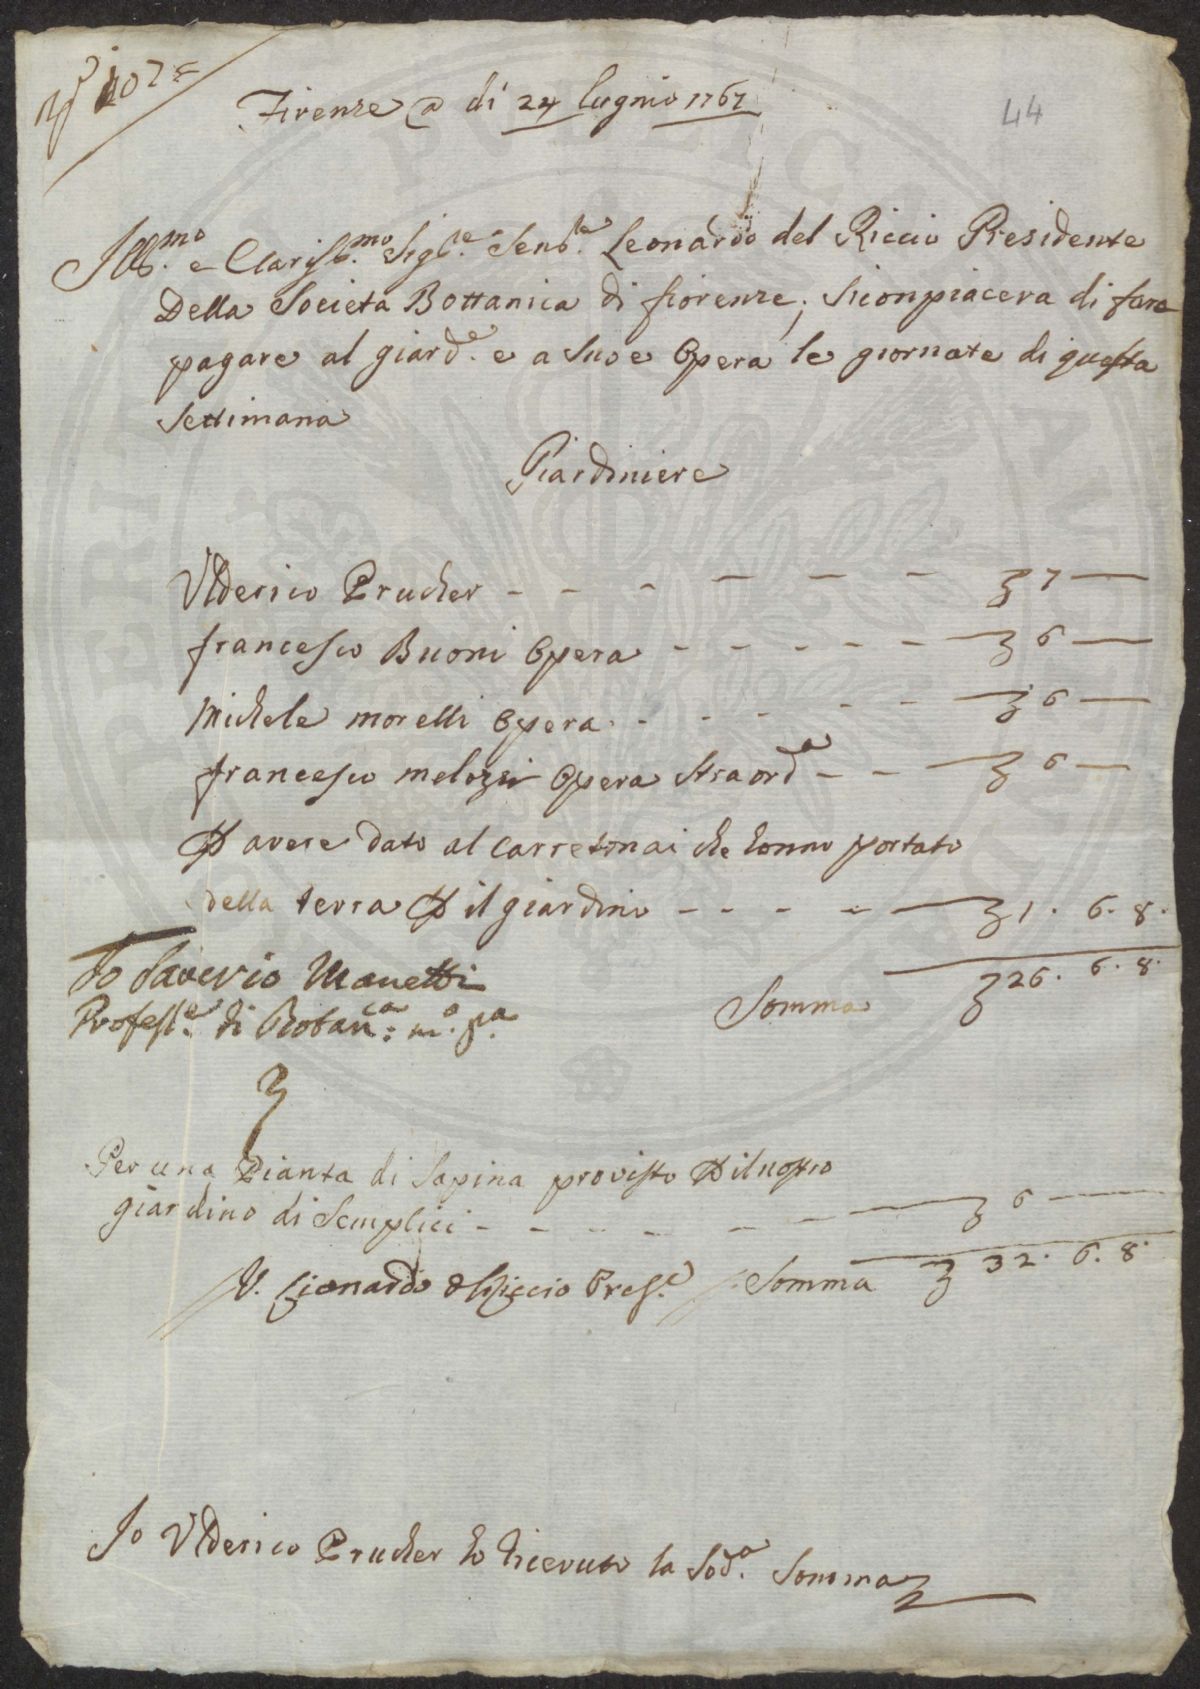 Firenze @ di 24 lugnio 1767
44
Ill.mo e Clariss.mo Sig.re Sen.re Leonardo del Riccio Presidente
Della Societa Bottanica di fiorenze; siconpiacera di fare
pagare al giard.e e a suoe Opera le giornate di questa
settimana
Giardiniere
Vlderico Prucher - - - - - - ʒ 7 —
francesco Buoni Opera - - - - - ʒ 6 —
Michele morelli Opera - - - - - ʒ 6 —
francesco melozzi Opera straord.a - - ʒ 6 —
P avere dato al carretonai che hanno portato
della terra P il giardino - - - - ʒ 1. 6. 8.
Io Saverio Manetti
Profess.e di Botan.ca: m.o p.a
Somma ʒ 26. 6. 8.
Per una Pianta di Sapina provisto P il nostro
giardino di Semplici - - - - - - ʒ 6 —
V. Lionardo del Riccio Pres.e Somma ʒ 32. 6. 8.
Io Vlderico Prucher ho ricevuto la Sod.a Somma